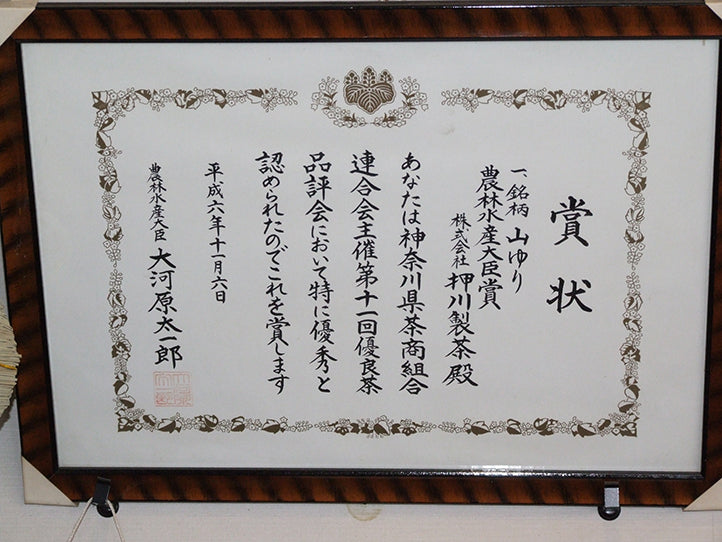 賞状
一、銘柄 山ゆり
農林水産大臣賞
株式会社 押川製茶殿
あなたは神奈川県茶商組合
連合会主催第十一回優良茶
品評会において特に優秀と
認められたのでこれを賞します
平成六年十一月六日
農林水産大臣 大河原太一郎